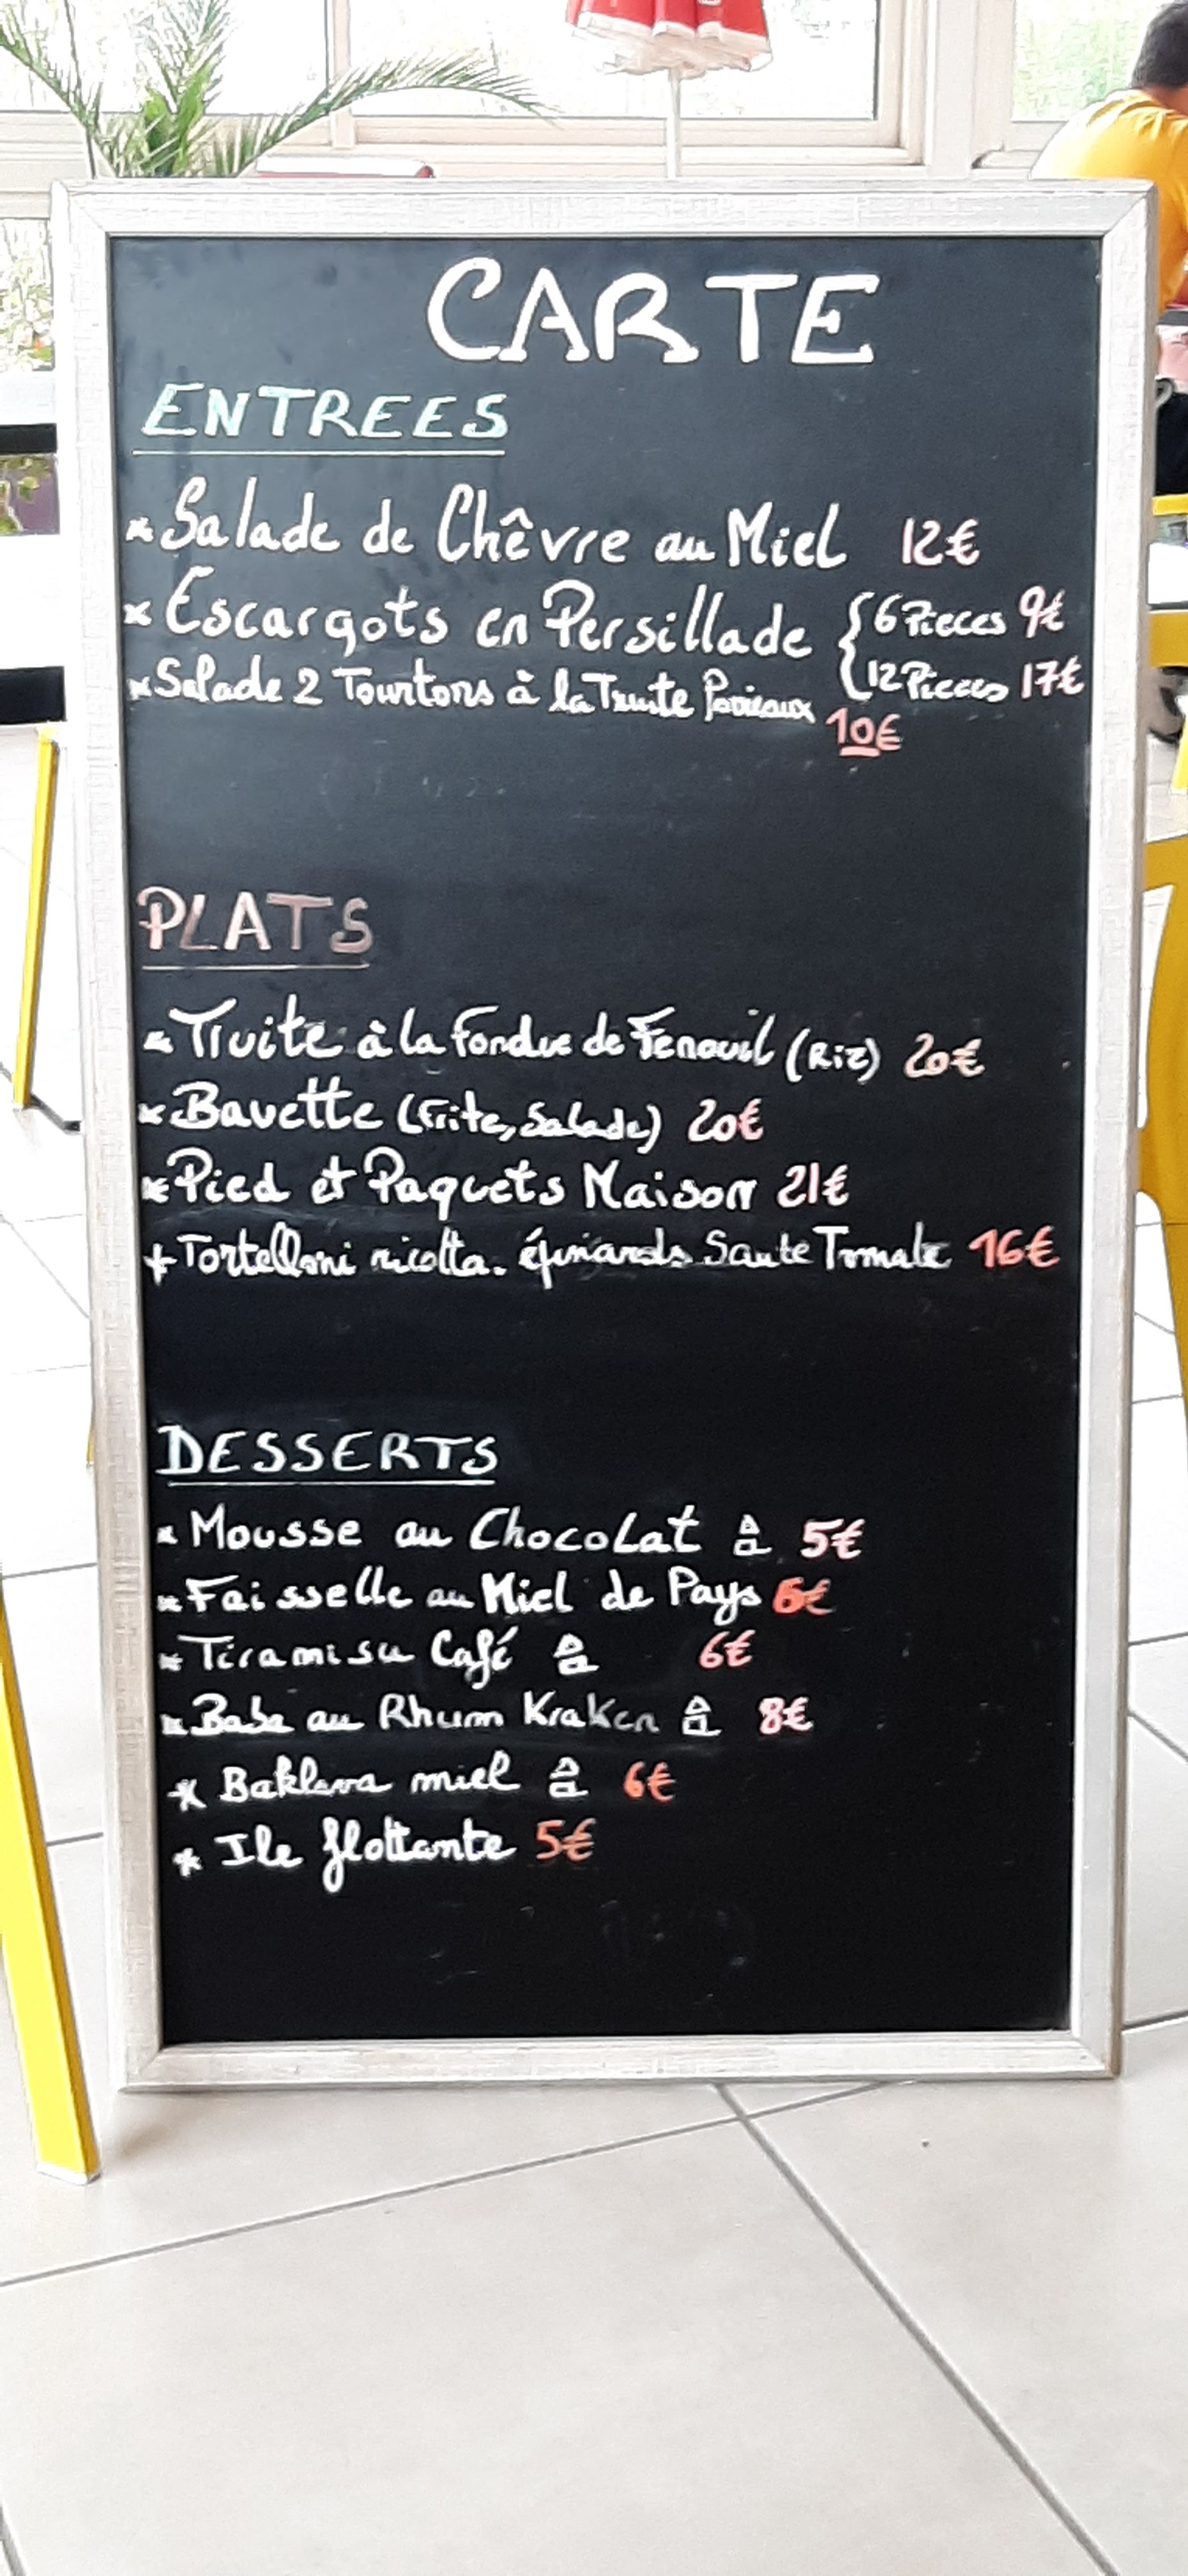 CARTE
ENTREES
* Salade de Chêvre au Miel 12€
* Escargots en Persillade { 6 Pieces 9€
{ 12 Pieces 17€
* Salade 2 Tourtons à la Truite Poireaux
10€
PLATS
* Truite à la Fondue de Fenouil (Riz) 20€
* Bavette (Frite, Salade) 20€
* Pied et Paquets Maison 21€
+ Tortelloni ricotta. épinards Saute Tomate 16€
DESSERTS
* Mousse au Chocolat 5€
* Faisselle au Miel de Pays 6€
* Tiramisu Café 6€
* Baba au Rhum Kraken 8€
* Baklava miel 6€
* Ile flottante 5€